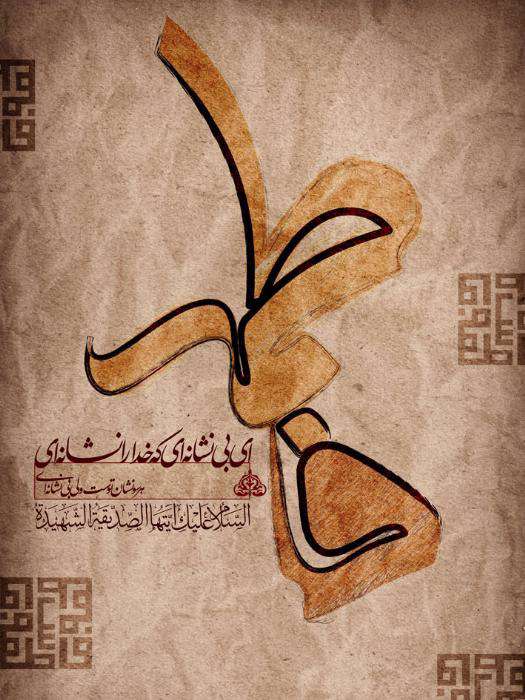 فاطمه
ای بی نشانه‌ای که خدا را نشانه‌ای
هر سو نشان توست ولی بی نشانه‌ای
السلام علیک ایتها الصدیقة الشهیدة